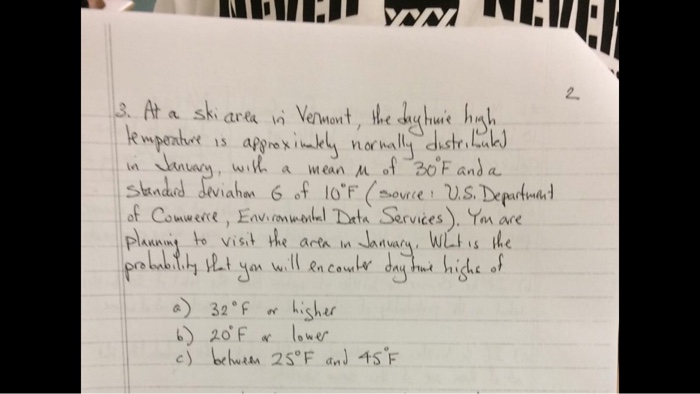 NEVER
XXX
NEVER
2
3. At a ski area in Vermont, the daytime high
temperature is approximately normally distributed
in January, with a mean μ of 30°F and a
standard deviation σ of 10°F (source: U.S. Department
of Commerce, Environmental Data Services). You are
planning to visit the area in January. What is the
probability that you will encounter daytime highs of
a) 32°F or higher
b) 20°F or lower
c) between 25°F and 45°F